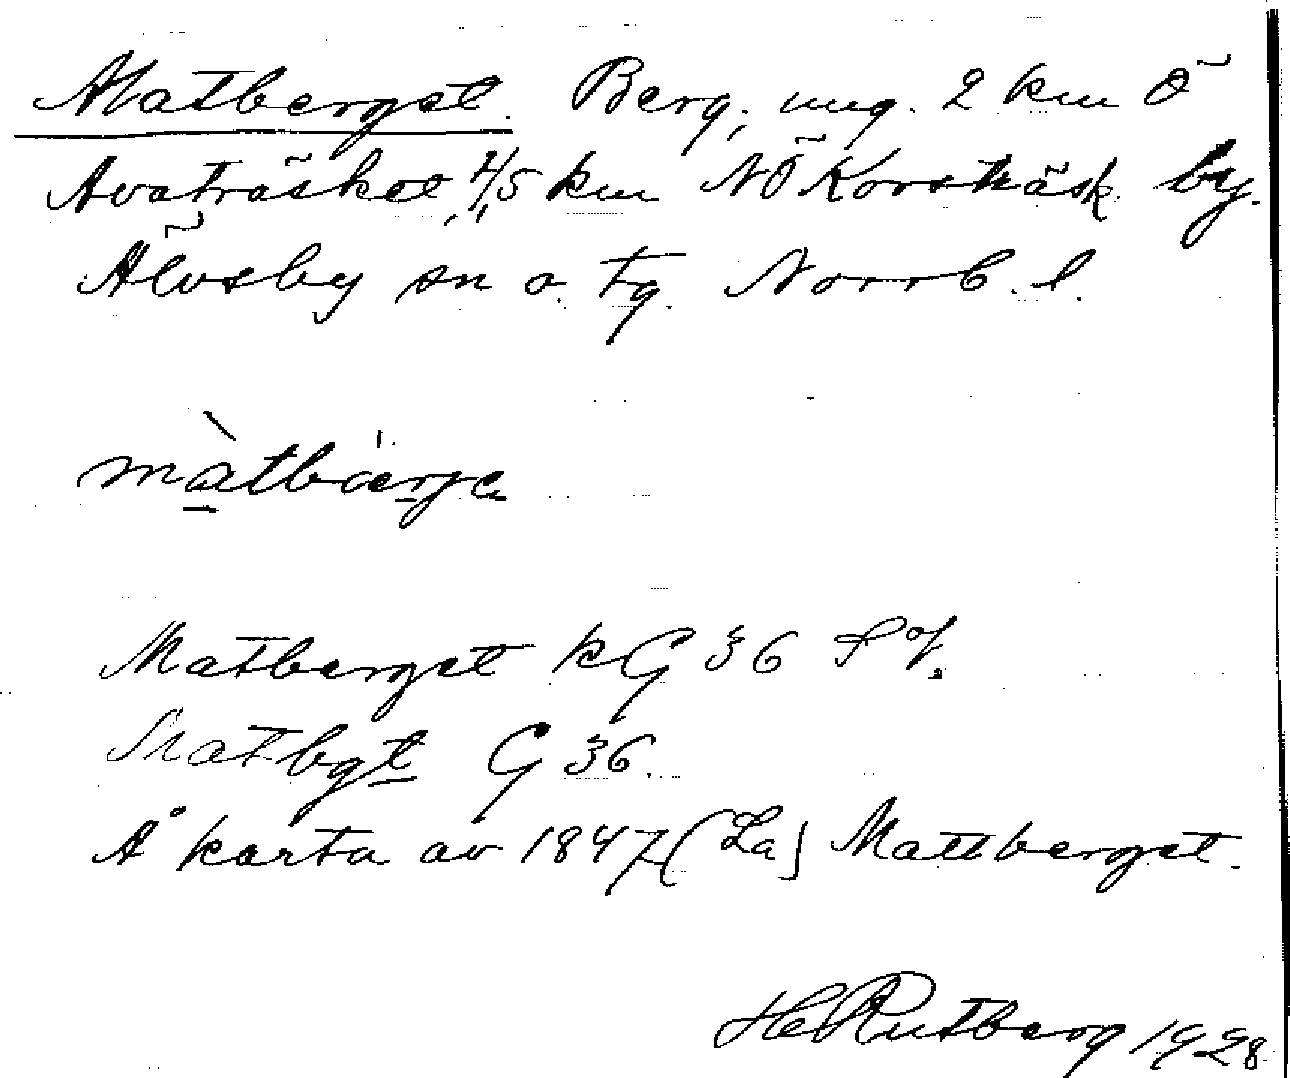 Matberget. Berg, ung. 2 km Ö
Avaträsket, 4,5 km NÖ Korsträsk by.
Älvsby sn o. tg. Norrb. l.
màtbärje
Matberget kG 36
Matbgt G 36.
Å karta av 1847 (La) Mattberget.
H Rutberg 1928